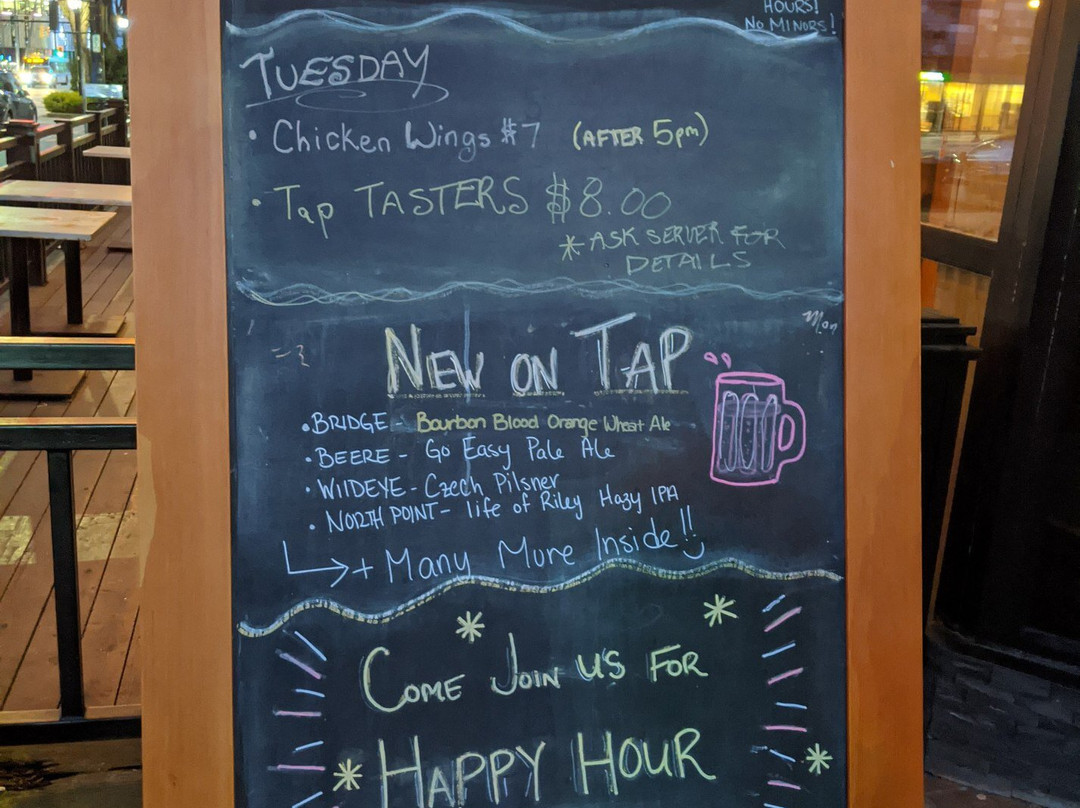 HOURS!
NO MINORS!
TUESDAY
• Chicken Wings $7 (AFTER 5pm)
• Tap TASTERS $8.00
* ASK SERVER FOR
DETAILS
NEW ON TAP
• BRIDGE - Bourbon Blood Orange Wheat Ale
• BEERE - Go Easy Pale Ale
• WILDEYE - Czech Pilsner
• NORTH POINT - life of Riley Hazy IPA
+ Many More Inside!!
COME JOIN US FOR
HAPPY HOUR